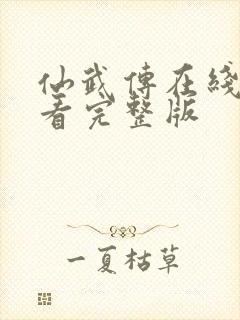 仙武傳在綫
看完整版
一夏枯草